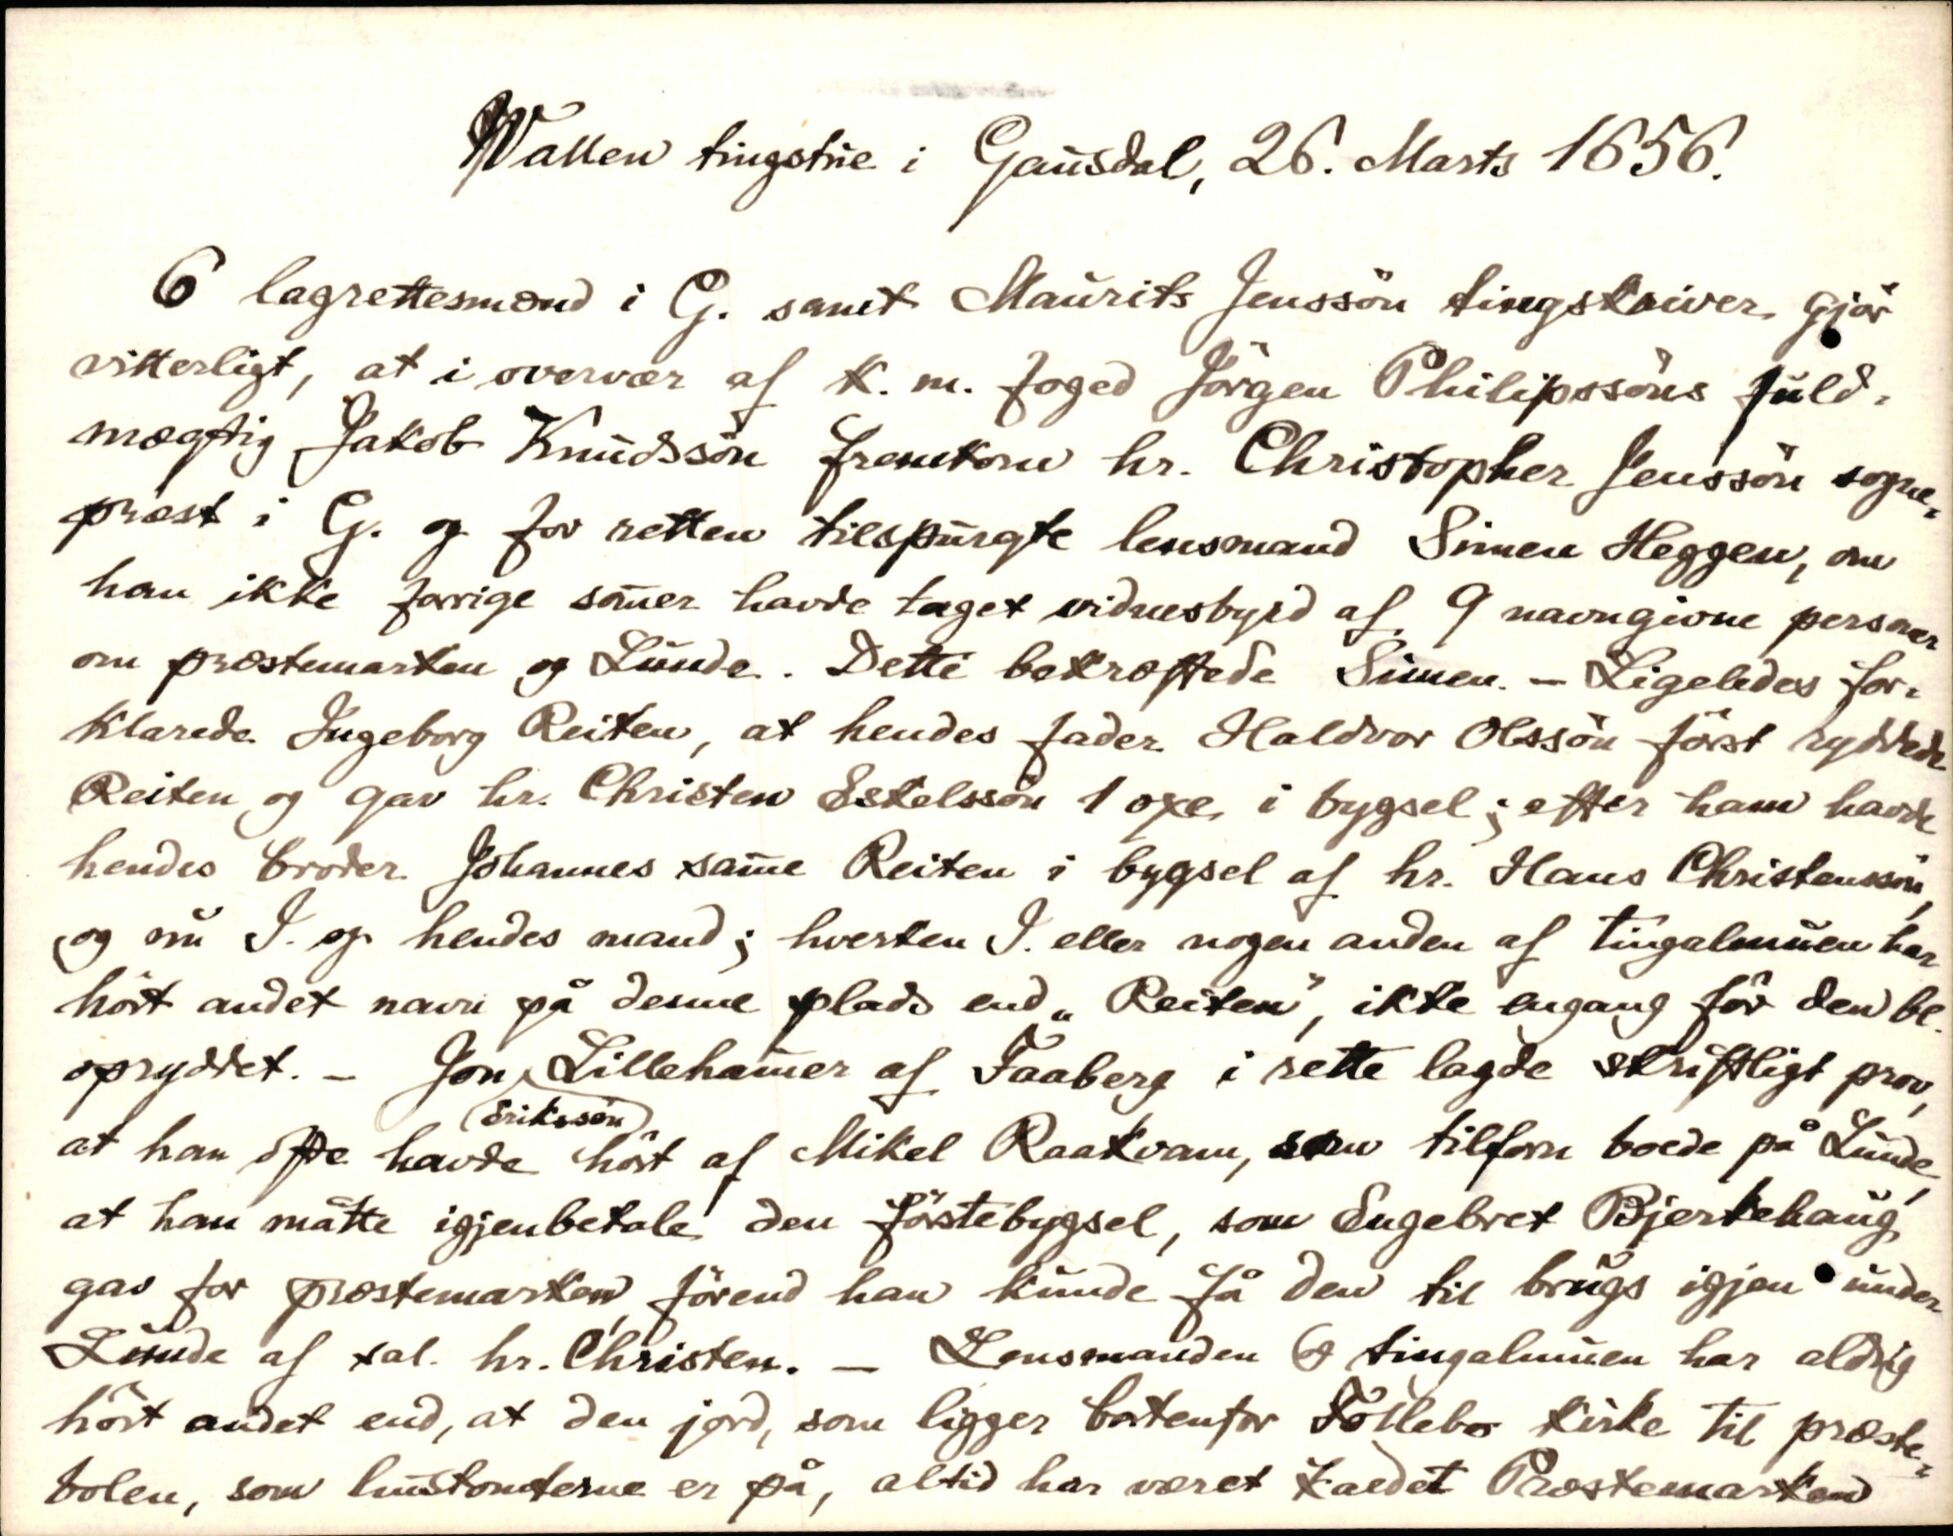 Wallen tingstue i Gausdal, 26. Marts 1656.
6 lagrettesmænd i G. samt Maurits Jenssön tingskriver gjör
vitterligt, at i overvær af k. m. foged Jörgen Philipssöns fuld-
mægtig Jakob Knudssön fremkom hr. Christopher Jenssön sogne-
præst i G. og for retten tilspurgte lensmand Simen Heggen, om
han ikke forrige som̄er havde taget vidnesbyrd af 9 navngivne personer
om præstemarken og Lunde. Dette bekræftede Simen. — Ligeledes for-
klarede Ingeborg Reiten, at hendes fader Haldvor Olssön först ryddede
Reiten og gav hr. Christen Eskelssön 1 oxe i bygsel; efter ham havde
hendes broder Johannes sam̄e Reiten i bygsel af hr. Hans Christenssön,
og nu I. og hendes mand; hverken I. eller nogen anden af tingalmuen har
hört andet navn på denne plads end „Reiten", ikke engang för den bl.
opryddet. — Jon Lilleham̄er af Faaberg i rette lagde skriftligt prov,
(Erikssön)
at han ofte havde hört af Mikel Raakvam, som tilforn boede på Lunde,
at han måtte igjenbetale den förstebygsel, som Engebret Bjerkehaug
gav for præstemarken, förend han kunde få den til brugs igjen under
Lunde af sal. hr. Christen. — Lensmanden og tingalmuen har aldrig
hört andet end, at den jord, som ligger bortenfor Follebo kirke til præste-
bolen, som hustomterne er på, altid har været kaldet Præstemarken